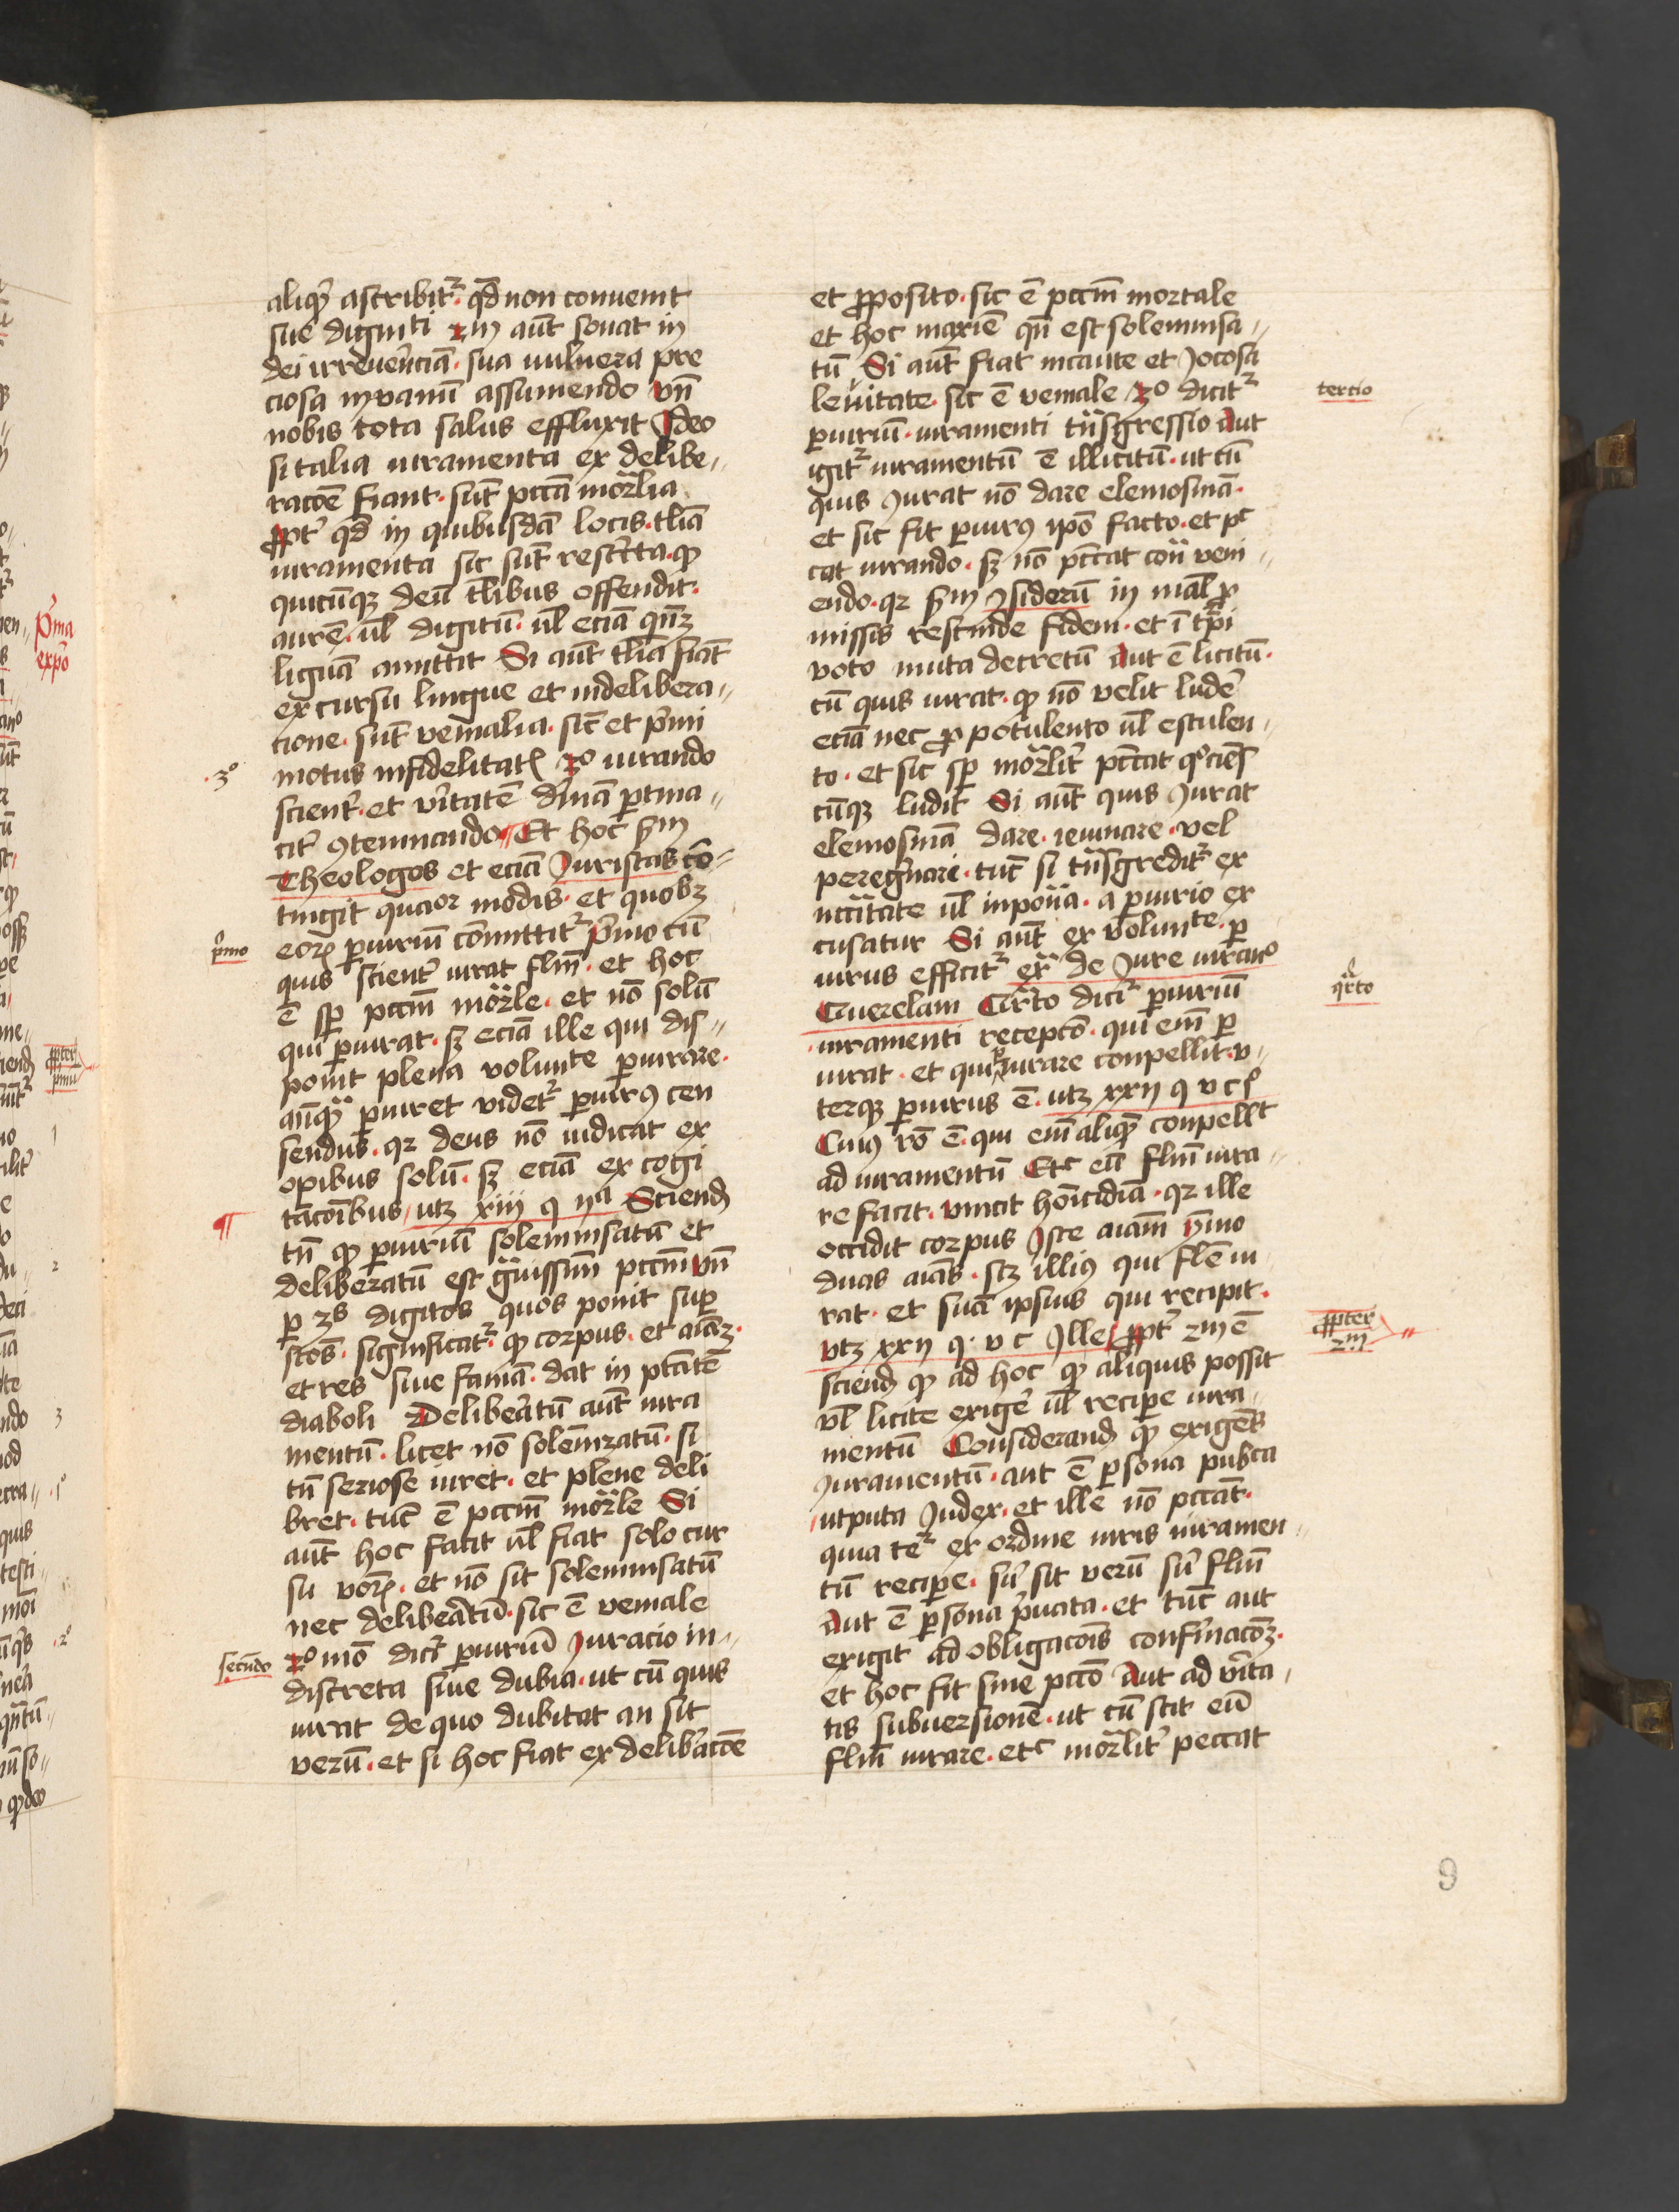 aliqꝫ ascribit᷑ · qd̄ non conuenit
sue digniti 2m aūt sonat in
dei irreuerēciā · sua uulnera pre
ciosa in vanū assumendo vn̄
nobis tota salus effluxit Ideo
si talia iuramenta ex delibe„
racōe fiant · sūt pcc̄a mor̄lia
ꝓpt̓ qd̄ in quibusdā locis · tl̄ia
iuramenta sic sūt rescr̄ta · ꝙ
quicūqꝫ deū tl̄ibus offendit ·
aurē · ūl digitū · ūl eciā qn̄qꝫ
liguā amittit Si aūt tl̄ia fiāt
ex cursu lingue et indelibera„
cione · sūt venialia · sic̄ et p̓mi
motus infidelitatꝭ 3o iurando
scient̓ · et v̓itatē diuinā ꝑtina„
cit̓ ꝯtemnando Et hoc s̄m
Theologos et eciā Juristas cō„
tingit quatuor modis · et quolibꝫ
eoꝝ ꝑiuriū cōmittit᷑ p̓mo cū
quis scient̓ iurat fl̄m · et hoc
ē sꝑ pccm̄ mor̄le · et nō solū
qui ꝑiurat · sꝫ eciā ille qui dis„
ponit plena volunte ꝑiurare ·
anq̄ꝫ ꝑiuret videt᷑ ꝑiurꝰ cen
sendus · qꝛ deus nō iudicat ex
oꝑibus solū · sꝫ eciā ex cogi
tac̄oībus / utꝫ xiii q iia Sciend̄
tn̄ ꝙ ꝑiuriū solemnisatū et
deliberatū est gr̄uissim̄ pccm̄ vn̄
ꝑ 3s digitos quos ponit suꝑ
sc̄os · significat᷑ ꝙ corpus · et aīaꝫ ·
et res siue famā · dat in ptātē
diaboli Deliberatū aūt iura
mentū · licet nō solēnizatū · si
tn̄ seriose iuret · et plene deli
bret · tūc ē pccm̄ mor̄le Si
aūt hoc facit ūl fiat solo cur
su voc̄ꝭ · et nō sit solemnisatū
nec deliberatū · sic ē veniale
2o mō dicit̓ ꝑiuriū Juracio in„
discreta siue dubia · ut cū quis
iurat de quo dubitat an sit
verū · et si hoc fiat ex deliberacōe
·3o
p̓mo
secūdo
¶
et ꝓposito · sic ē pccm̄ mortale
et hoc maxiē qn̄ est solemnisa„
tū Si aūt fiat incaute et Jocosa
leuitate · sic ē veniale 3o dicit᷑
ꝑiuriū · iuramenti tn̄sgressio Aut
igit᷑ iuramentū ē illicitū · ut cū
quis Jurat nō dare elemosinā ·
et sic fit ꝑiurꝰ ipō facto · et pc
cat iurando · sꝫ nō pccat con̄ veni„
endo · qꝛ s̄m ysiderū in mal̄ ꝓ
missis rescinde fidem · et ī tꝑi
voto muta decretū Aut ē licitū ·
cū quis iurat · ꝙ nō velit luder̓
eciā nec ꝓ potulento ūl esculen„
to · et sic sꝑ mor̄lit̓ pccat qo̓ciēs
cūqꝫ ludit Si aūt quis Jurat
elemosinā dare · ieiunare · vel
peregrinari · tūc si tn̄sgredit᷑ ex
nccītate ūl inpon̄a · a ꝑiurio ex
cusatur Si aūt ex volunte · ꝑ
iurus efficit᷑ ext̄ de Jure iurano
Querelam Qr̄to dicit᷑ ꝑiuriū
iuramenti recepcō · qui em̄ ꝑ
iurat · et qui ꝑiurare conpellit · v„
terqꝫ ꝑiurus ē · utꝫ xxii q v c si
Cuiꝰ rō ē · qui em̄ aliqꝫ conpellt
ad iuramentū Etc eū flm̄ iura„
re facit · vincit homicidiā · qꝛ ille
occidit corpus Iste aiām ymo
duas aīas · scꝫ illiꝰ qui flm̄ iu
rat · et suā ipsius qui recipit ·
vtꝫ xxii q · v c Ille ꝓpt̓ 2m ē
sciend̄ ꝙ ad hoc ꝙ aliquis possit
vl licite exiger̓ ūl reciꝑe iura„
mentū Considerand̄ ꝙ exigens
Juramentū · aut ē ꝑsona publica
utputa Judex · et ille nō pccat ·
quia te᷑ ex ordine iuris iuramen„
tū reciꝑe · siu̓ sit verū siu̓ flm̄
Aut ē ꝑsona p̓uata · et tūc aut
exigit ad obligacōis confirmacōꝫ ·
et hoc fit sine pccō Aut ad v̓ita„
tis subuersionē · ut cū scit eū
flm̄ iurare · etc mor̄lit̓ peccat
tercio
qr̄to
ꝓpter
2m
9
p̓ma
expō
ꝓpter
pmū